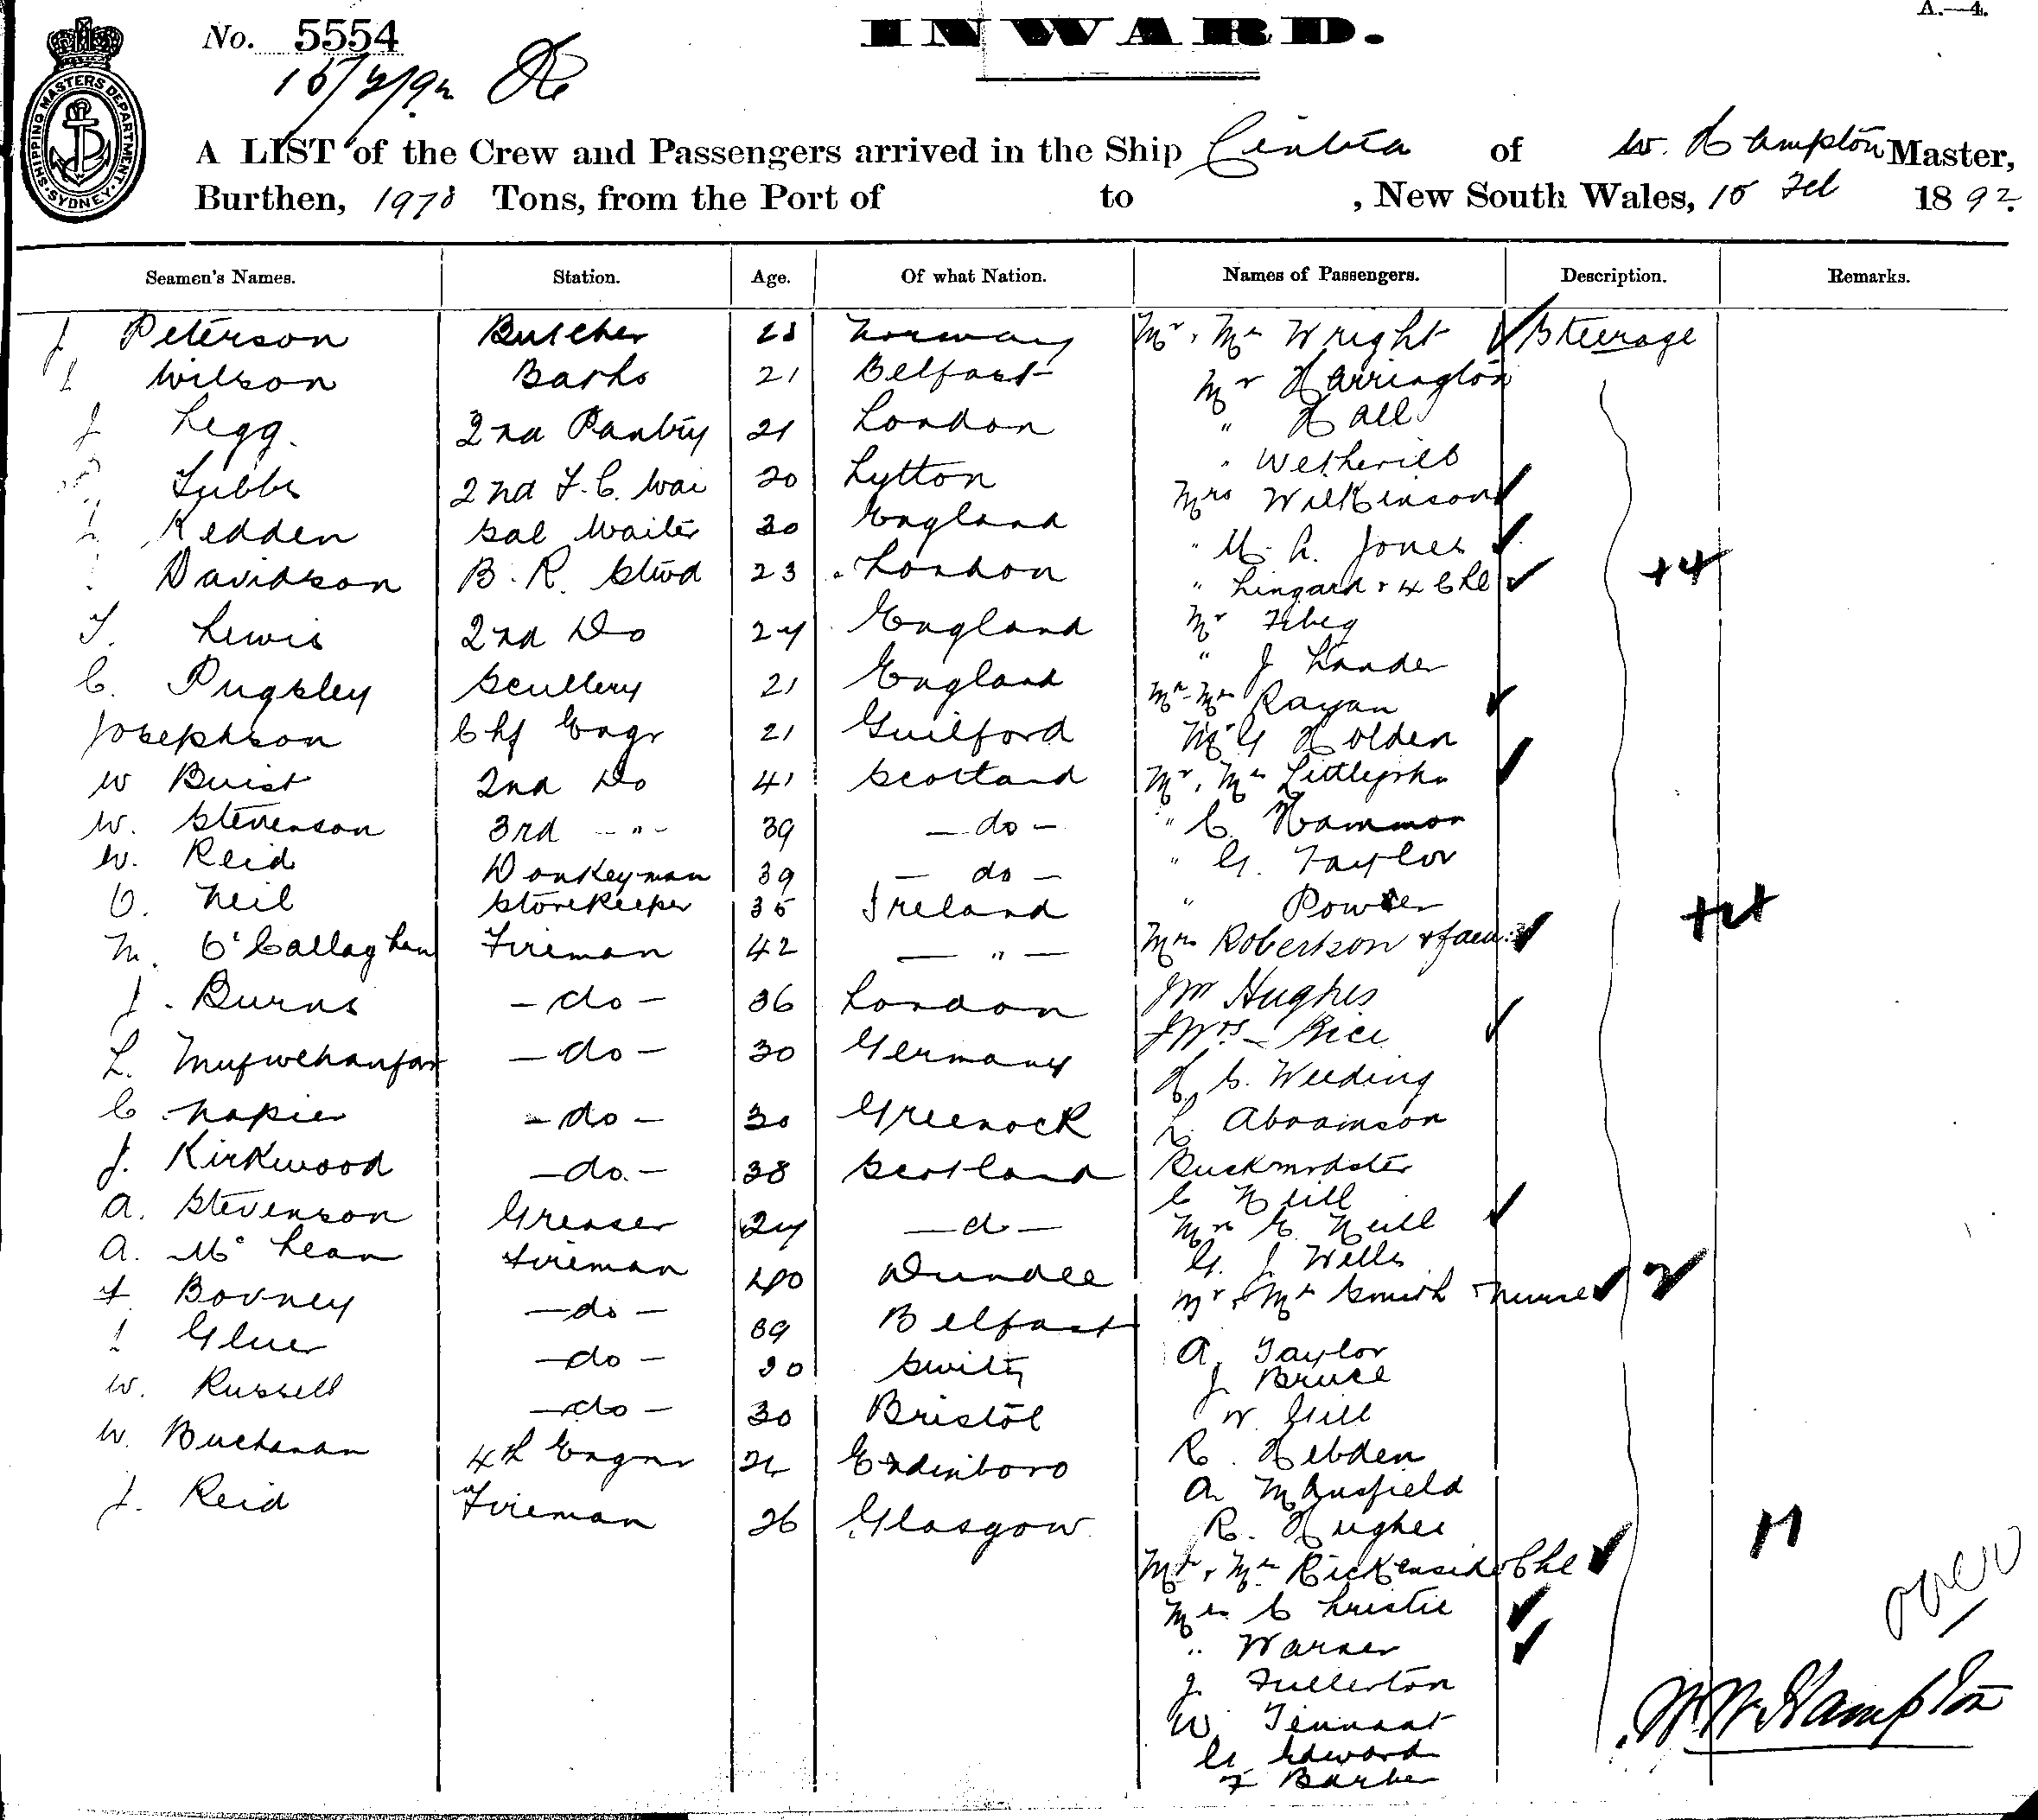 A.—4.
No. 5554
INWARD.
15/2/92
SHIPPING MASTERS DEPARTMENT. SYDNEY.
A LIST of the Crew and Passengers arrived in the Ship Cintra of W. Hampton Master,
Burthen, 1978 Tons, from the Port of to , New South Wales, 15 Feb 1892.
Seamen's Names. Station. Age. Of what Nation. Names of Passengers. Description. Remarks.
J Peterson Butcher 28 Norway Mr & Mrs Wright Steerage
Wilson Barks 21 Belfast Mr Harrington
J Legg. 2nd Pantry 21 London " Hall
Tubbs 2nd F. C. Wai 20 Lytton " Wetherill
Redden Sal Waiter 30 England Mrs Wilkinson
Davidson B. R. Stwd 23 London " M. A. Jones
T. Lewis 2nd Do 24 England " Lingard & 4 Chl +4
C. Pugsley Scullery 21 England Mr
Josephson Chf Engr 21 Guilford " J Lander
W Buist 2nd Do 41 Scotland Mr Mrs Rayan
W. Stevenson 3rd - " - 39 — do — Mr G Holden
W. Reid Donkeyman 39 — do — Mr & Mrs
O. Neil Storekeeper 35 Ireland " C. Hammon
M. O'Callaghan Fireman 42 — " — " G. Taylor
J. Burns — do — 36 London " Power
L. — do — 30 Germany Mrs Robertson & fam
C. Napier — do — 30 Greenock Mr Hughes
J. Kirkwood — do. — 38 Scotland Mrs Rice
A. Stevenson Greaser 24 — do — H. C. Weeding
A. McLean Fireman 40 Dundee L. Abramson
F. Bovney — do — 39 Belfast
Gluer — do — 30 C Neill
W. Russell — do — 30 Bristol Mrs C. Neill
W. Buchanan 4th Engnr Edinboro G. J. Wells
J. Reid Fireman 26 Glasgow Mr & Mrs Smith & Nurse 2
A. Taylor
J. Bruce
W. Gill
R. Hebden
A. Mansfield
R. Hughes
Mr & Mrs & Chl
Mrs Christie
" Warner
J. Fullerton
W. Tennant
G. Edward
F Barber
over
W. W. Hampton